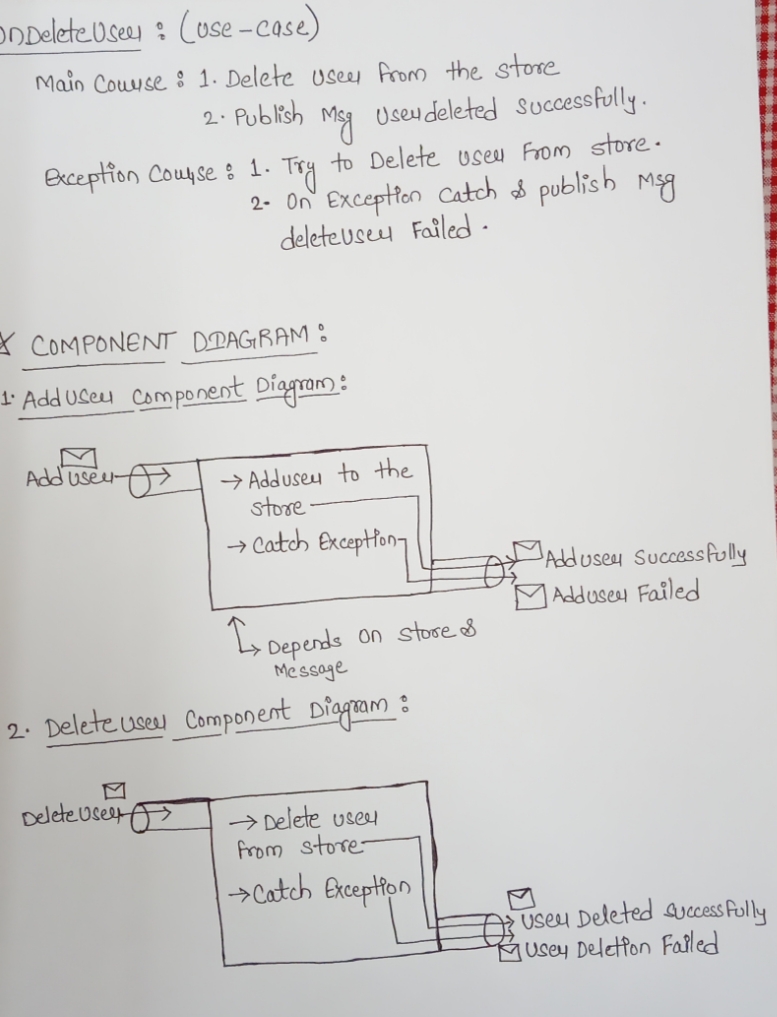 OnDeleteUser : (use-case)
Main Course : 1. Delete user from the store
2. Publish Msg Userdeleted Successfully.
Exception Course : 1. Try to Delete user From store.
2. On Exception Catch & publish Msg
deleteuser Failed.
* COMPONENT DIAGRAM :
1. AddUser Component Diagram :
Adduser
→ Adduser to the
store
→ Catch Exception
Adduser Successfully
Adduser Failed
Depends On Store &
Message
2. Deleteuser Component Diagram :
DeleteUser
→ Delete user
from store
→ Catch Exception
User Deleted Successfully
User Deletion Failed